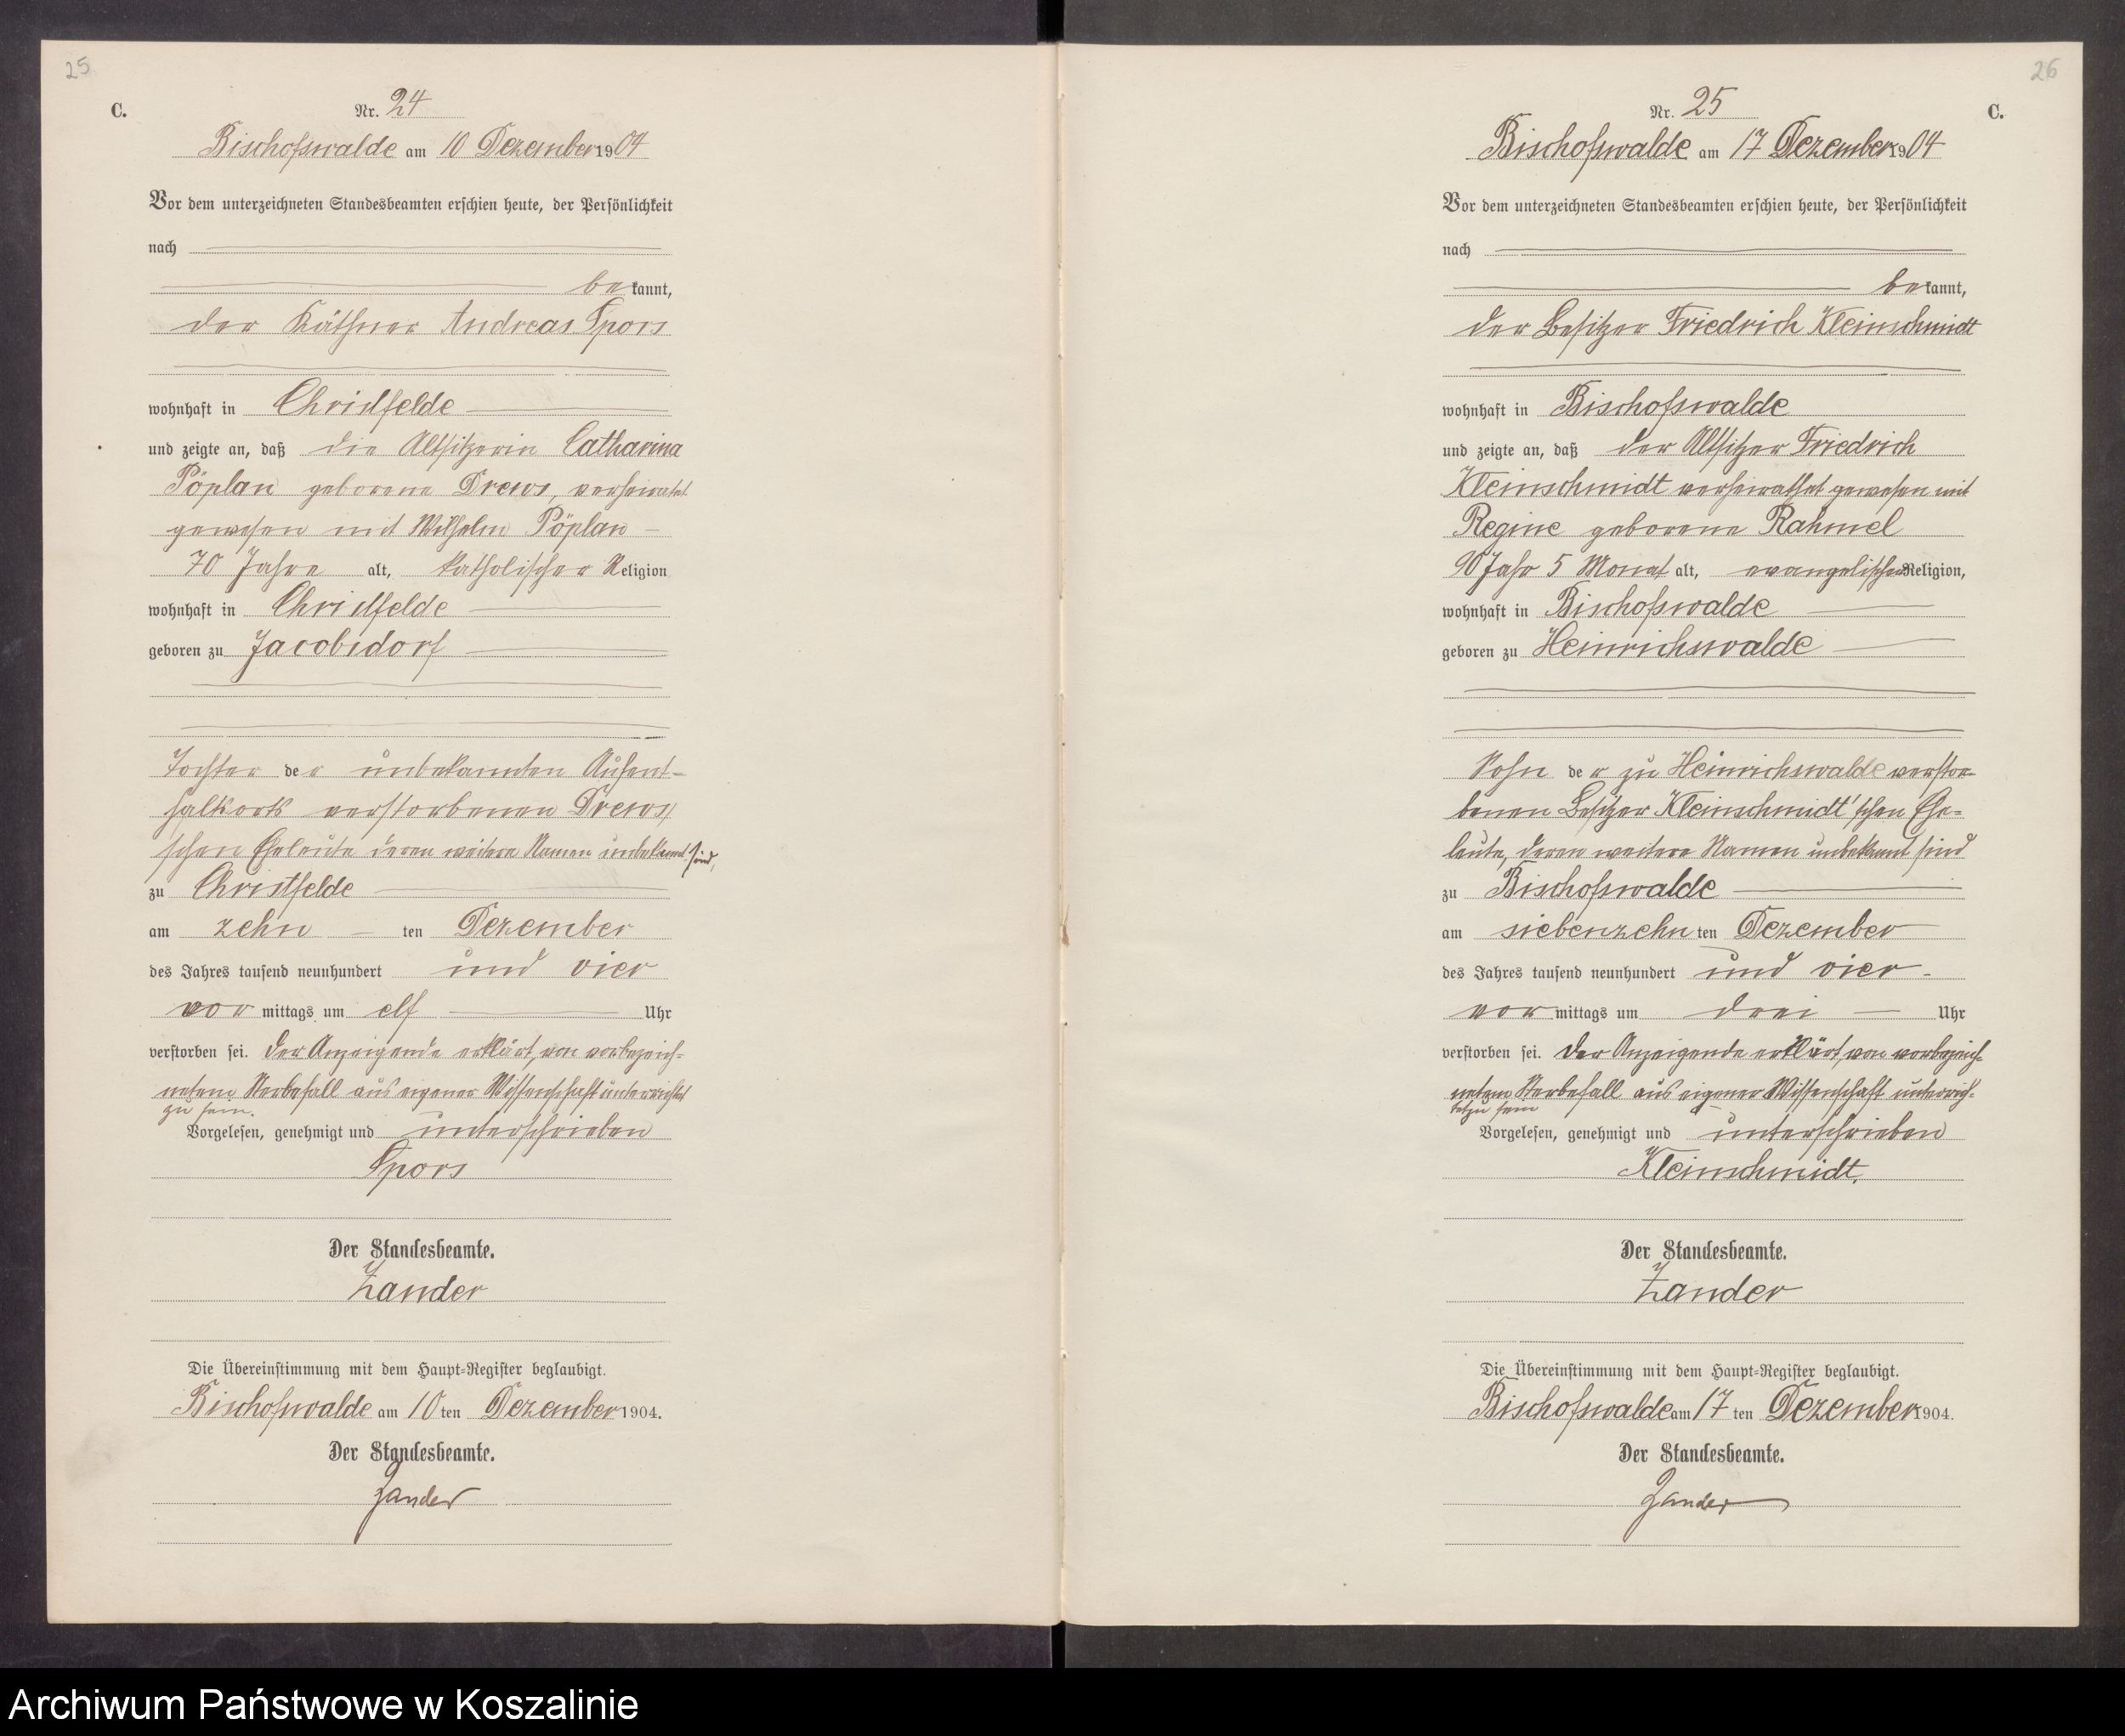 25
C.
Nr. 24
Bischofswalde am 10 Dezember 1904
Vor dem unterzeichneten Standesbeamten erschien heute, der Persönlichkeit
nach
bekannt,
der Käthner Andreas Spors
wohnhaft in Christfelde
und zeigte an, daß die Altsitzerin Catharina
Pöplau geborene Drews, verheiratet
gewesen mit Wilhelm Pöplau
70 Jahre alt, katholischer Religion
wohnhaft in Christfelde
geboren zu Jacobsdorf
Tochter der unbekannten Aufent-
haltsorts verstorbenen Drews
schen Eheleute deren weitere Namen unbekannt sind,
zu Christfelde
am zehn ten Dezember
des Jahres tausend neunhundert und vier
vor mittags um elf Uhr
verstorben sei. Der Anzeigende erklärt, von vorbezeich-
netem Sterbefall aus eigener Wissenschaft unterrichtet
zu sein.
Vorgelesen, genehmigt und unterschrieben
Spors
Der Standesbeamte.
Zander
Die Übereinstimmung mit dem Haupt-Register beglaubigt.
Bischofswalde am 10 ten Dezember 1904.
Der Standesbeamte.
Zander
26
Nr. 25
C.
Bischofswalde am 17 Dezember 1904
Vor dem unterzeichneten Standesbeamten erschien heute, der Persönlichkeit
nach
bekannt,
der Besitzer Friedrich Kleinschmidt
wohnhaft in Bischofswalde
und zeigte an, daß der Altsitzer Friedrich
Kleinschmidt verheirathet gewesen mit
Regine geborene Rahmel
90 Jahr 5 Monat alt, evangelischer Religion,
wohnhaft in Bischofswalde
geboren zu Heinrichswalde
Sohn der zu Heinrichswalde verstor-
benen Besitzer Kleinschmidt'schen Ehe-
leute, deren weitere Namen unbekannt sind
zu Bischofswalde
am siebenzehn ten Dezember
des Jahres tausend neunhundert und vier
vor mittags um drei Uhr
verstorben sei. Der Anzeigende erklärt, von vorbezeich-
netem Sterbefall aus eigener Wissenschaft unterrich-
tet zu sein
Vorgelesen, genehmigt und unterschrieben
Kleinschmidt.
Der Standesbeamte.
Zander
Die Übereinstimmung mit dem Haupt-Register beglaubigt.
Bischofswalde am 17 ten Dezember 1904.
Der Standesbeamte.
Zander
Archiwum Państwowe w Koszalinie